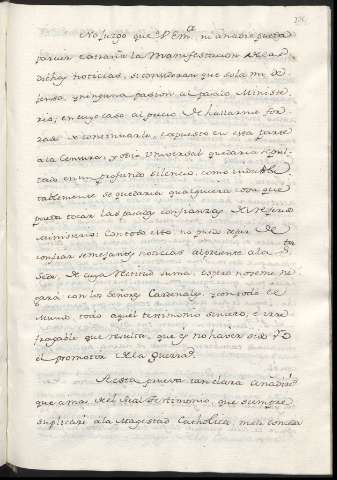 No juzgo que S. Em.ª ni à nadie pueda
parecer estraña la manifestacion de
dichas noticias, si consideran que sola mi de-
fensa, y ninguna pasion al pasado Ministe-
rio, en cuyo caso al precio de hallarme for-
zado à continuarla, expuesto en esta parte
à la Censura, y odio Universal quedaria sepul-
tado en un profundo silencio, como indubi-
tablemente se quedaria qualquiera cosa que
pueda tocar las pasadas confianzas de
Ministerio: con todo esto no puedo dejar de
confiar semejantes noticias al presente à la S.ta
Sede, de cuya rectitud suma, espero no me ne-
gará con los Señores Cardenales, y con todo el
Mundo, todo aquel testimonio sincero, è irre-
fragable que resulta, que es no haver sido Yo
el promotor de la Guerra.
A esta prueva tan clara añadiré
que ama del Real testimonio, que siempre
supliqué à la Magestad Catholica, me le conceda